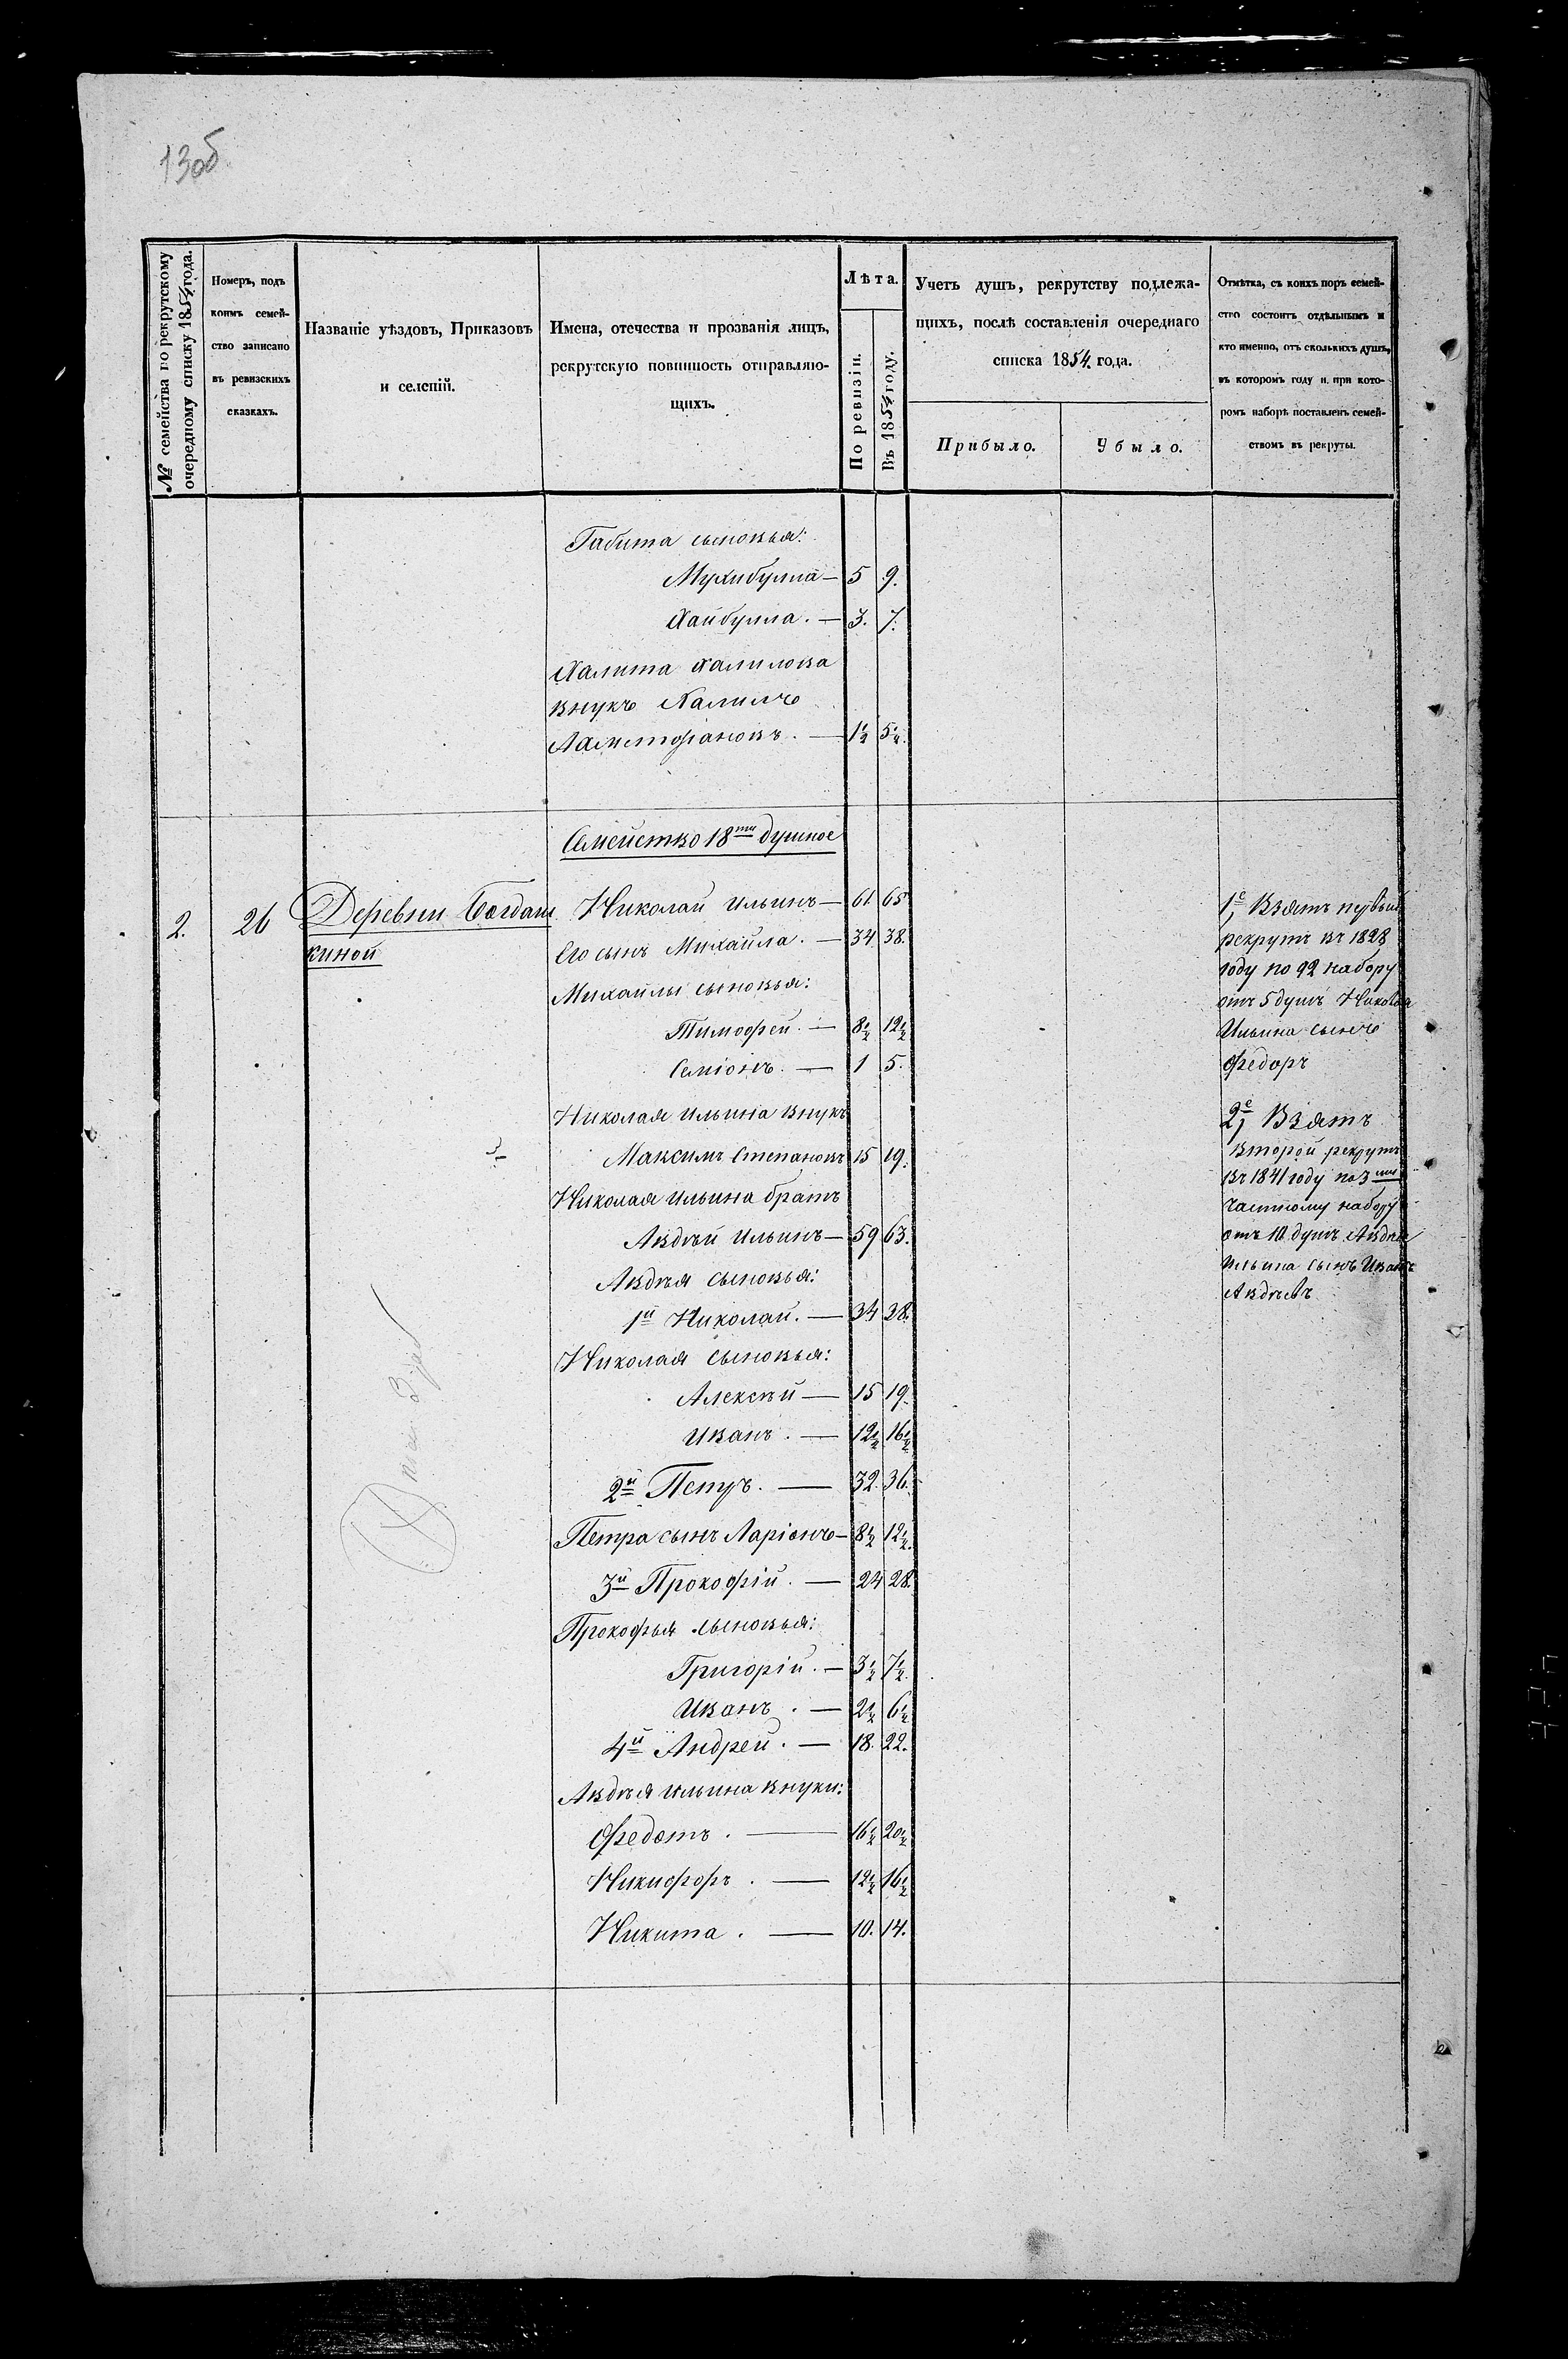 13об
№ семейства по рекрутскому очередному списку 1854 года.
Номеръ, подъ
коимъ семей-
ство записано
въ ревизскихъ
сказкахъ.
Названіе уѣздовъ, Приказовъ
и селеній.
Имена, отечества и прозванія лицъ,
рекрутскую повинность отправляю-
щихъ.
Лѣта.
По ревизіи.
Въ 1854 году.
Учетъ душъ, рекрутству подлежа-
щихъ, послѣ составленія очереднаго
списка 1854. года.
Прибыло.
Убыло.
Отмѣтка, съ коихъ поръ семей-
ство состоитъ отдѣльнымъ и
кто именно, отъ сколькихъ душъ,
въ которомъ году и при кото-
ромъ наборѣ поставленъ семей-
ствомъ въ рекруты.
Габита сыновья:
Мухибулла — 5 9.
Хайбулла. — 3. 7.
Халита Халилова
внукъ Халилъ
— 1½ 5½.
Семейство 18ти душное
2. 26 Деревни Богдаш
киной
Николай Ильинъ — 61 65
Его сынъ Михайла. — 34 38.
Михайлы сыновья:
Тимофей. — 8½ 12½
Семіонъ. — 1 5.
Николая Ильина внукъ
Максимъ Степановъ 15 19.
Николая Ильина братъ
Авдѣй Ильинъ — 59 63.
Авдѣя сыновья:
1й Николай. — 34 38.
Николая сыновья:
Алексѣй — 15 19.
Иванъ. — 12½ 16½
2й Петръ. — 32. 36.
Петра сынъ Ларіонъ — 8½ 12½.
3й Прокофій. — 24 28.
Прокофья сыновья:
Григорій. — 3½ 7½.
Иванъ. — 2½ 6½
4й Андрей. — 18. 22.
Авдѣя Ильина внуки:
Федотъ. — 16½ 20½
Никифоръ. — 12½ 16½
Никита. — 10. 14.
1е, Взятъ первый
рекрутъ въ 1828
году по 92 набору
отъ 5 душъ Николая
Ильина сынъ
Федоръ
2е, Взятъ
второй рекрутъ
въ 1841 году по 3му
частному набору
отъ 10 душъ Авдѣя
Ильина сынъ Иванъ
Авдѣевъ